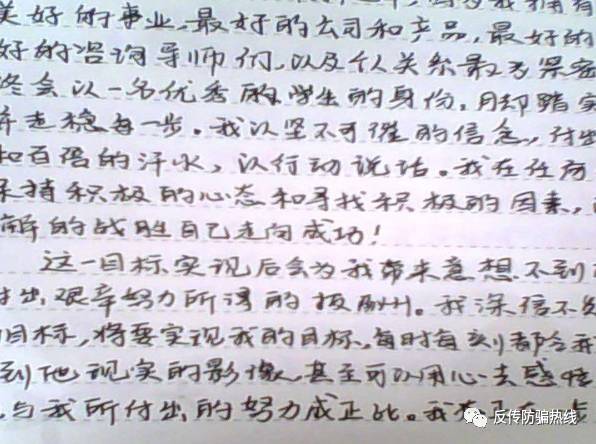 美好的事业，最好的公司和产品，最好的
好的咨询导师们，以及个人关系最为紧密
终会以一名优秀的学生的身份，脚踏实
走稳每一步。我以坚不可摧的信念，付出
和百倍的汗水，以行动说话。我在任何
保持积极的心态和寻找积极的因素，
解的战胜自己走向成功！
这一目标实现后会为我带来意想不到
付出艰辛努力所得的报酬。我深信不
目标，将要实现我的目标，每时每刻都会
到他现实的影像，甚至可以用心去感悟
，与我所付出的努力成正比。我
反传防骗热线